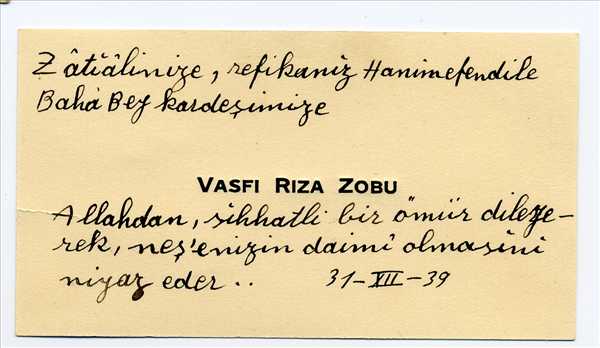 Zâtiâlinize, refikaniz Hanimefendile
Bahâ Bey kardeşimize
VASFI RIZA ZOBU
Allahdan, sihhatli bir ömür dileye-
rek, neş'enizin daimî olmasini
niyaz eder..    31-XII-39